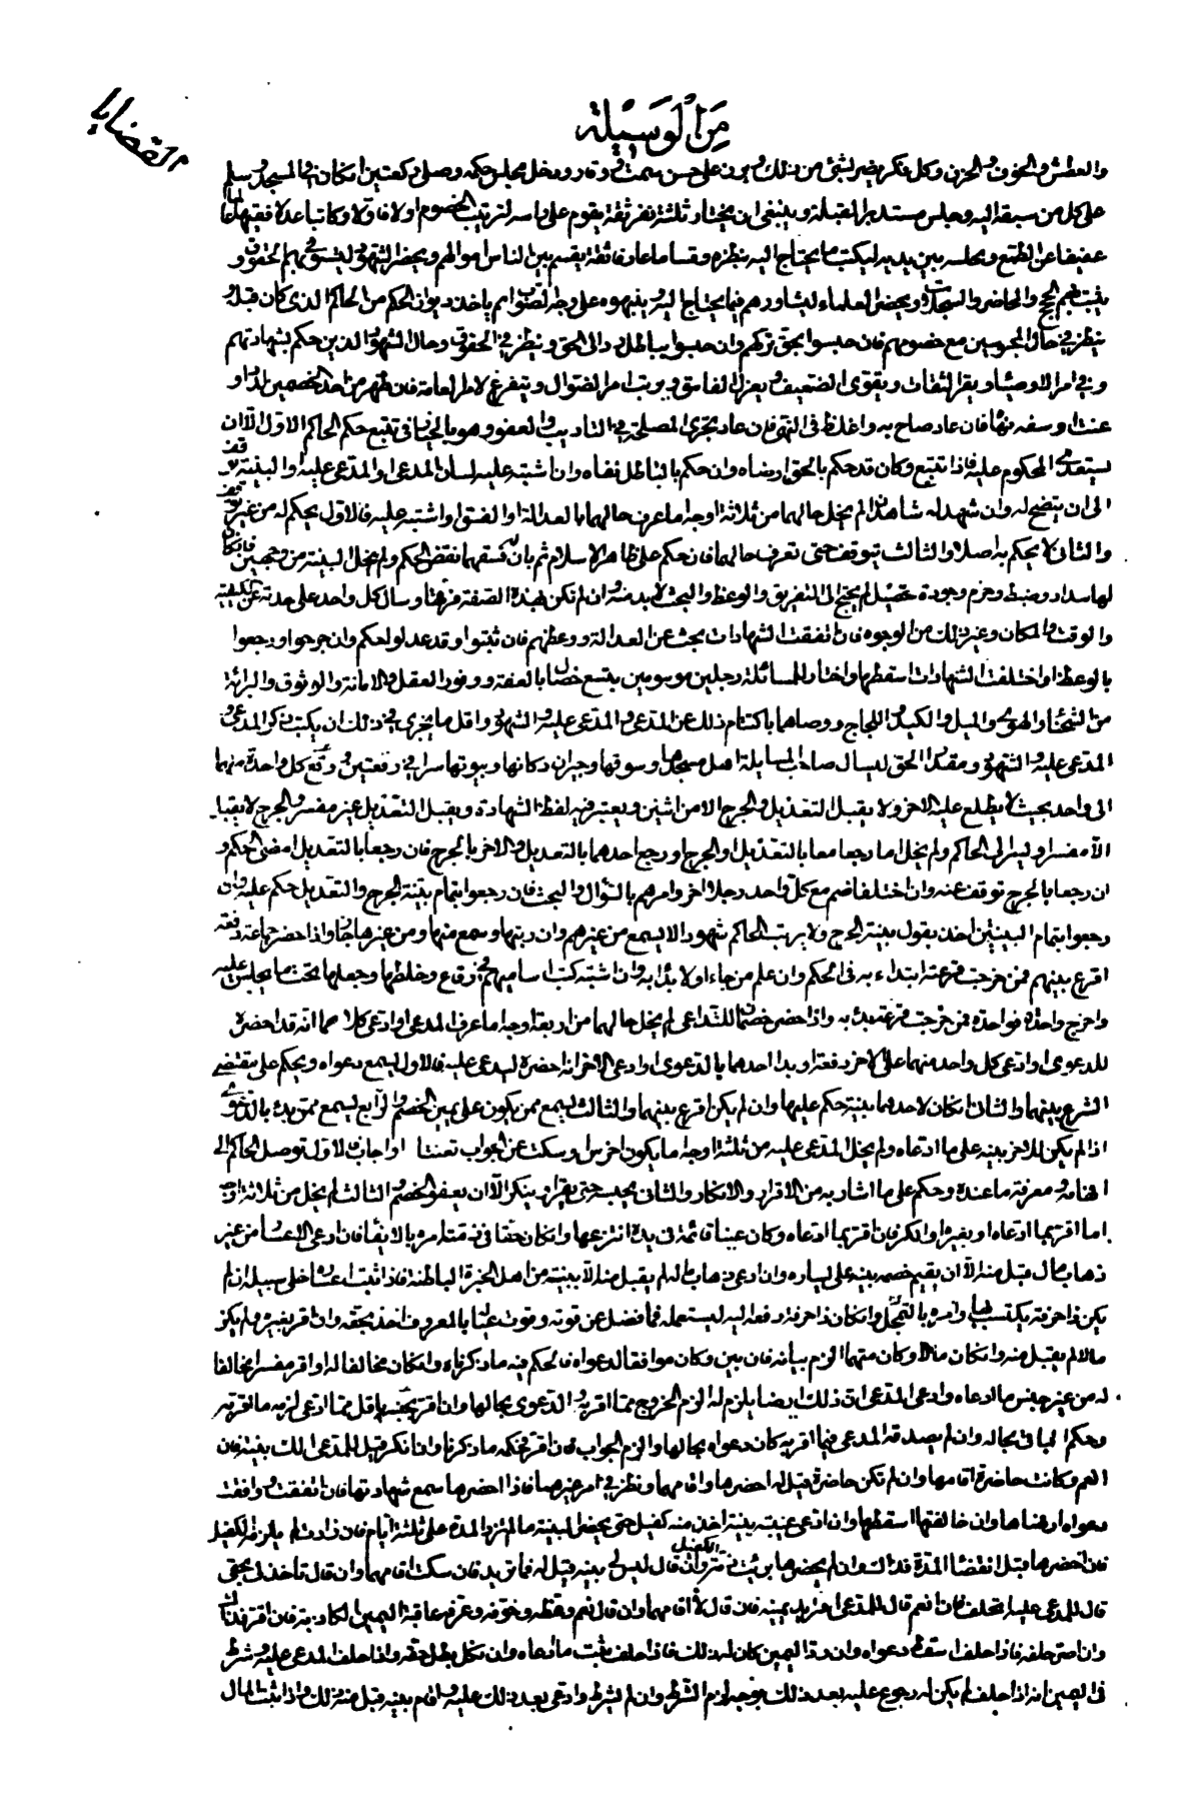 القضايا
من الوسيلة
والعطش والخوف والحزن وكل فكر يضر لشئ من ذلك ويرد على حسن سمت في وقار ودخل مجلس حكمه وصلى ركعتين ان كان في المسجد وسلم
على كل من سبقه اليه وجلس مستدبر القبلة وينبغى ان يختار ثلثة نفر ثقة يقوم على راسه لترتيب الخصوم اولا فاولا وكاتبا عدلا فقيها عالما
عفيفا عن الطمع ويجلسه بين يديه ليكتب ما يحتاج اليه بنظره وقساما عارفا ثقة يقسم بين الناس اموالهم ويحضر الشهود ليستوفي بهم الحقوق و
يثبت بهم الحجج والمحاضر والسجلات ويحضر العلماء ليشاورهم فيما يحتاج اليه وينبهوه على وجه الصواب ثم ياخذ ديوان الحكم من الحاكم الذى كان قبله و
ينظر في حال المحبوسين مع خصومهم فان حبسوا بحق تركهم وان حبسوا بباطل رد الى الحق ونظر في الحقوق وحال الشهود الذين حكم بشهادتهم
وفي امر الاوصياء ويقر الثقات ويقوى الضعيف ويعزل الفاسق ويرتب امر الضوال ويتفرغ لامر العامة فان ظهر من احد الخصمين لدد او
عنت او سفه نهاه فان عاد صاح به واغلظ في النهى فان عاد تحرى المصلحة في التاديب والعفو وهو بالخيار في تتبع حكم الحاكم الاول الا ان
يستعدى المحكوم عليه فاذا تتبع وكان قد حكم بالحق امضاه وان حكم بالباطل نقضاه وان اشتبه عليه لسان المدعى او المدعى عليه او البينة توقف
الى ان يتضح له وان شهد له شاهدان لم يخل حالهما من ثلاثة اوجه اما عرف حالهما بالعدالة او الفسق او اشتبه عليه فالاول يحكم له من غير توقف
والثانى لا يحكم به اصلا والثالث يتوقف حتى تعرف حالهما فان حكم على ظاهر الاسلام ثم بان فسقهما نقض الحكم ولم يخل البينة من وجهين فان كان
لها سداد وضبط وحزم وجودة تحصيل لم يحتج الى التفريق والوعظ والبحث لا بد منه وان لم تكن بهذه الصفة فرقها وسال كل واحد على حدته عن الكيفية
والوقت والمكان وغير ذلك من الوجوه فان اتفقت الشهادات بحث عن العدالة ووعظهم فان ثبتوا وقد عدلوا حكم وان جرحوا ورجعوا
بالوعظ او اختلفت الشهادات اسقطها واختار للمسائلة رجلين موسومين بتسع خصال بالعفة ووفور العقل والامانة والوثوق والبرائة
من الشحناء والهوى والميل والكيد واللجاج ووصاهما باكتتام ذلك عن المدعى والمدعى عليه والشهود واقل ما يجزى في ذلك ان يكتب ذكر المدعى و
المدعى عليه والشهود ومقدار الحق ليسال صاحب المسايلة اهل مسجدها وسوقها وجيران دكانها وبيوتها سرا في رقعتين ودفع كل واحدة منهما
الى واحد بحيث لا يطلع عليه الاخر ولا يقبل التعديل والجرح الا من اثنين ويعتبر فيه لفظ الشهادة ويقبل التعديل غير مفسر والجرح لا يقبل
الا مفسرا وليسر الى الحاكم ولم يخل اما رجعا معا بالتعديل او الجرح او رجع احدهما بالتعديل والاخر بالجرح فان رجعا بالتعديل امضى الحكم و
ان رجعا بالجرح توقف عنه وان اختلفا ضم مع كل واحد رجلا اخر وامرهم بالسؤال والبحث فان رجعوا بتمام بينة الجرح والتعديل حكم عليه وان
رجعوا بتمام البينتين اخذ بقول بينة الجرح ولا يرتب الحاكم شهودا لا يسمع من غيرهم وان رتبها وسمع منها ومن غيرها جاز واذا حضر جماعة دفعة
اقرع بينهم فمن خرجت قرعته ابتداء به في الحكم وان علم من جاء اولا بدا به وان اشتبه كتب اساميهم في رقاع وخلطها وجعلها تحت ما يجلس عليه
واخرج واحدة فواحدة فمن خرجت قرعته بدئ به واذا حضر خصمان للتداعى لم يخل حالهما من اربعة اوجه اما عرف المدعى او ادعى كلاهما انه قد احضره
للدعوى او ادعى كل واحد منهما على الاخر دفعة او بدا احدهما بالدعوى وادعى الاخر انه احضره ليدعى عليه فالاول يسمع دعواه ويحكم على مقتضى
الشرع بينهما والثانى ان كان لاحدهما بينة حكم عليها وان لم يكن اقرع بينهما والثالث يسمع ممن يكون على يمين الخصم والرابع يسمع ممن بدء بالدعوى
اذا لم يكن للاخر بينة على ما ادعاه ولم يخل المدعى عليه من ثلثة اوجه اما يكون اخرس او سكت عن الجواب تعنتا او اجاب فالاول توصل الحاكم الى
افهامه ومعرفة ما عنده وحكم على ما اشار به من الاقرار والانكار والثانى يحبسه حتى يقر او ينكر الا ان يعفو الخصم والثالث لم يخل من ثلاثة اوجه
اما اقر بما ادعاه او بغيره او انكر فان اقر بما ادعاه وكان عينا قائمة في يده انتزعها وان كان حقا في ذمته امره بالايفاء فان ادعى الاعسار من غير
ذهاب مال قبل منه الا ان يقيم خصمه بينة على يساره وان ادعى ذهاب ماله لم يقبل منه الا ببينة من اهل الخبرة الباطنة فاذا ثبت اعساره خلى سبيله ان لم
يكن ذا حرفة يكتسب بها وامره بالتمحل وان كان ذا حرفة دفعه اليه ليستعمله فما فضل عن قوته وقوت عياله بالمعروف اخذ بحقه وان اقر بغيره ولم يكن
مالا لم يقبل منه وان كان مالا وكان مبهما الزم بيانه فان بين وكان موافقا لدعواه فالحكم فيه ما ذكرناه وان كان مخالفا له او اقر مفسرا مخالفا
له من غير جنس ما ادعاه وادعى المدعى ان ذلك ايضا يلزم له الزم الخروج مما اقر به والدعوى بحالها وان اقر بجنسها اقل مما ادعى لزمه ما اقر به
وحكم الباقى بحاله وان لم يصدقه المدعى فيما اقر به كان دعواه بحالها والزم الجواب فان اقر فحكمه ما ذكرنا وان انكر قيل للمدعى الك بينة فان
نعم وكانت حاضرة اقامها وان لم تكن حاضرة قيل له احضرها واقامهما ونظر في امر غيرهما فاذا احضرها سمع شهادتها فان اتفقت ووافقت
دعواه امضاها وان خالفتها اسقطها وان ادعى غيبة بينة اخذ منه كفيل حتى يحضر البينة ما لم تزد المدة على ثلثة ايام فان زادت لم يلزمه الكفيل
فان احضرها قبل انقضاء المدة فذاك وان لم يحضرها برئت ذمة الكفيل وان قال ليس لى بينة قيل له فما تريد فان سكت اقامهما وان قال تاخذ لى بحقى
قال للمدعى عليه اتحلف فان انعم قال للمدعى اتريد يمينه فان قال لا اقامهما وان قال نعم وعظه وخوفه وعرفه عاقبة اليمين الكاذبة فان اقر فذاك
وان اصر حلفه فاذا حلف اسقط دعواه وان رد اليمين كان له ذلك فاذا حلف ثبت ما ادعاه وان نكل بطل حقه واذا حلف المدعى عليه وشرط
فى اليمين انه اذا حلف لم يكن له رجوع عليه بعد ذلك بوجه لزم الشرط وان لم يشرط وادعى بعد ذلك عليه واقام بينة قبل منه ذلك واذا ثبت المال